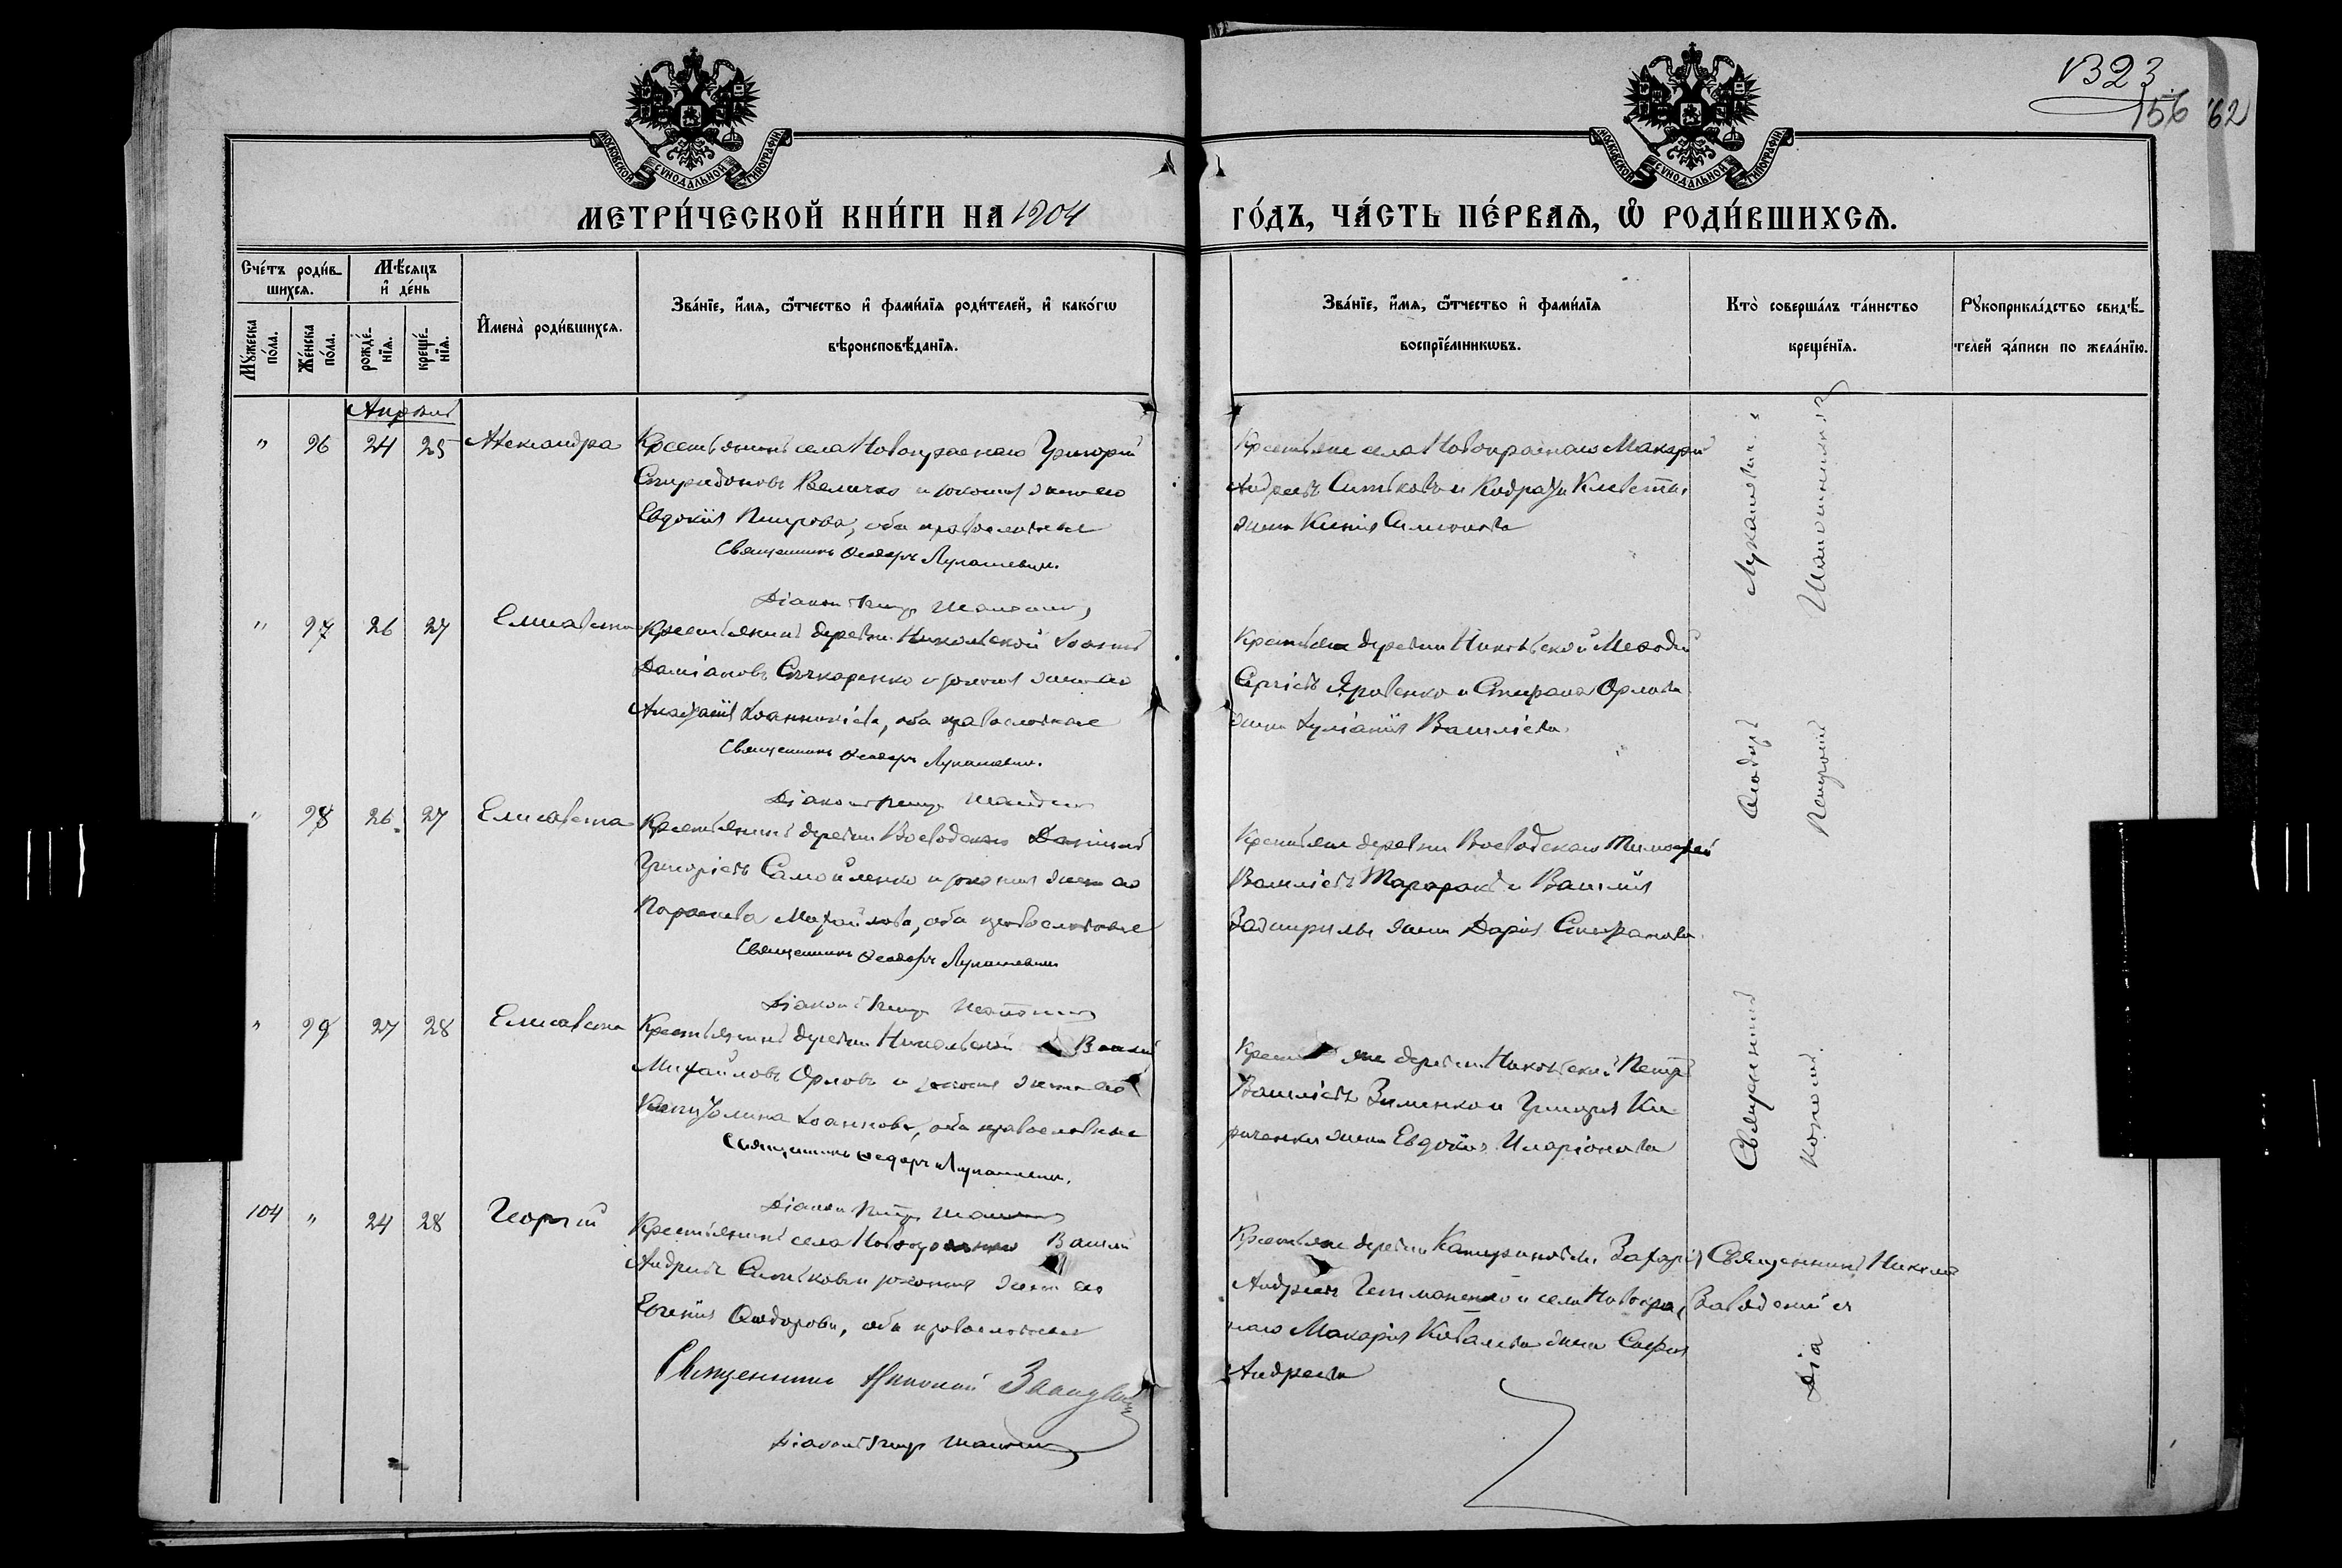 1323
156
162
МОСКОВСКОЙ СѴНОДАЛЬНОЙ ТИПОГРАФІИ
МОСКОВСКОЙ СѴНОДАЛЬНОЙ ТИПОГРАФІИ
МЕТРИ́ЧЕСКОЙ КНИ́ГИ НА 1904
ГО́ДЪ, ЧА́СТЬ ПЕ́РВАѦ, Ѡ҆ РОДИ́ВШИХСѦ.
Сче́тъ роди́в-
шихсѧ.
Мꙋ́жеска по́ла.
Же́нска по́ла.
Мѣ́сѧцъ
и҆ де́нь
рожде́-
нїѧ.
креще́-
нїѧ.
И҆мена̀ роди́вшихсѧ.
Зва́нїе, и҆́мѧ, ѻ҆́тчество и҆ фами́лїѧ роди́телей, и҆ како́гѡ
вѣроисповѣ́данїѧ.
Зва́нїе, и҆́мѧ, ѻ҆́тчество и҆ фами́лїѧ
воспрїе́мникѡвъ.
Кто̀ соверша́лъ та́инство
креще́нїѧ.
Рꙋкоприкла́дство свидѣ́-
телей за́писи по жела́нїю.
Апрѣль
" 96 24 25 Александра
Крестьянинъ села Новокраснаго Григорій
Спиридоновъ Величко и законная жена его
Евдокія Петрова, оба православные
Священникъ Ѳеодоръ Лукашевич.
Діаконъ Петръ
Крестьяне села Новокраснаго Макарій
Андреевъ Ситьковъ и
жена Ксенія Симонова
" 97 26 27 Елисавета
Крестьянинъ деревни Никольской Іоаннъ
Даміановъ и законная жена его
Іоанникіева, оба православные
Священникъ Ѳеодоръ Лукашевич.
Діаконъ Петръ
Крестьяне деревни Никольской Меѳодій
Сергіевъ Яровенко и Стефана Орлова
жена Іуліанія Василіева
" 98 26 27 Елисавета
Крестьянинъ деревни Воеводскаго Даніилъ
Григоріевъ Самойленко и законная жена его
Параскева Михайлова, оба православные
Священникъ Ѳеодоръ Лукашевич
Діаконъ Петръ
Крестьяне деревни Воеводскаго Тимоѳей
Василіевъ и Василія
жена Дарія Стефанова
" 99 27 28 Елисавета
Крестьянинъ деревни Никольской Василій
Михайловъ Орловъ и законная жена его
Іоаннова, оба православные
Священникъ Ѳеодоръ Лукашевич.
Діаконъ Петръ
Крестьяне деревни Никольской Петръ
Василіевъ Зименко и Григорія Ки-
риченка жена Евдокія Иларіонова
104 " 24 28 Георгій
Крестьянинъ села Новокраснаго Василій
Андреевъ Ситьковъ и законная жена его
Евгенія Ѳеодорова, оба православные
Священникъ Николай Завадскій
Діаконъ Петръ
Крестьяне деревни Катериновки Захарій
Андреевъ Гетманенко и села Новокрас-
наго Макарія Ковалева жена Софія
Андреева
Священникъ Ѳеодоръ Лукашевичъ и
Діаконъ Петръ
Священникъ Николай
Завадскій и